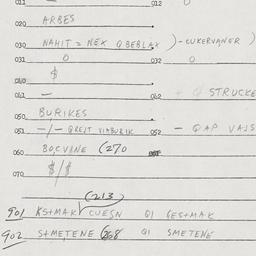 011 — 012 0
020 ARBES
030 NAHIT = NEX QBEBLAX ) - CUKERVANER )
031 0 032 0
040 $
041 — 042 STRUCKE
050 BURIKES
051 -/- QREJT VIABURIK 052 - QAP VAJS
060 BOCVINE (270
070 $/$
(213)
901 KS+MAK CUESN QI GES+MAK
902 S+METENE (208 QI SMETENE